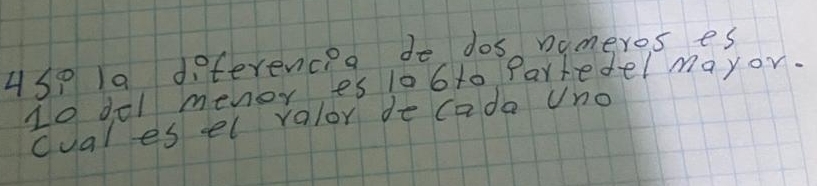 4 Si la diferencia de dos numeros es
10 del menor es la 6to Parte del mayor.
Cual es el valor de cada uno